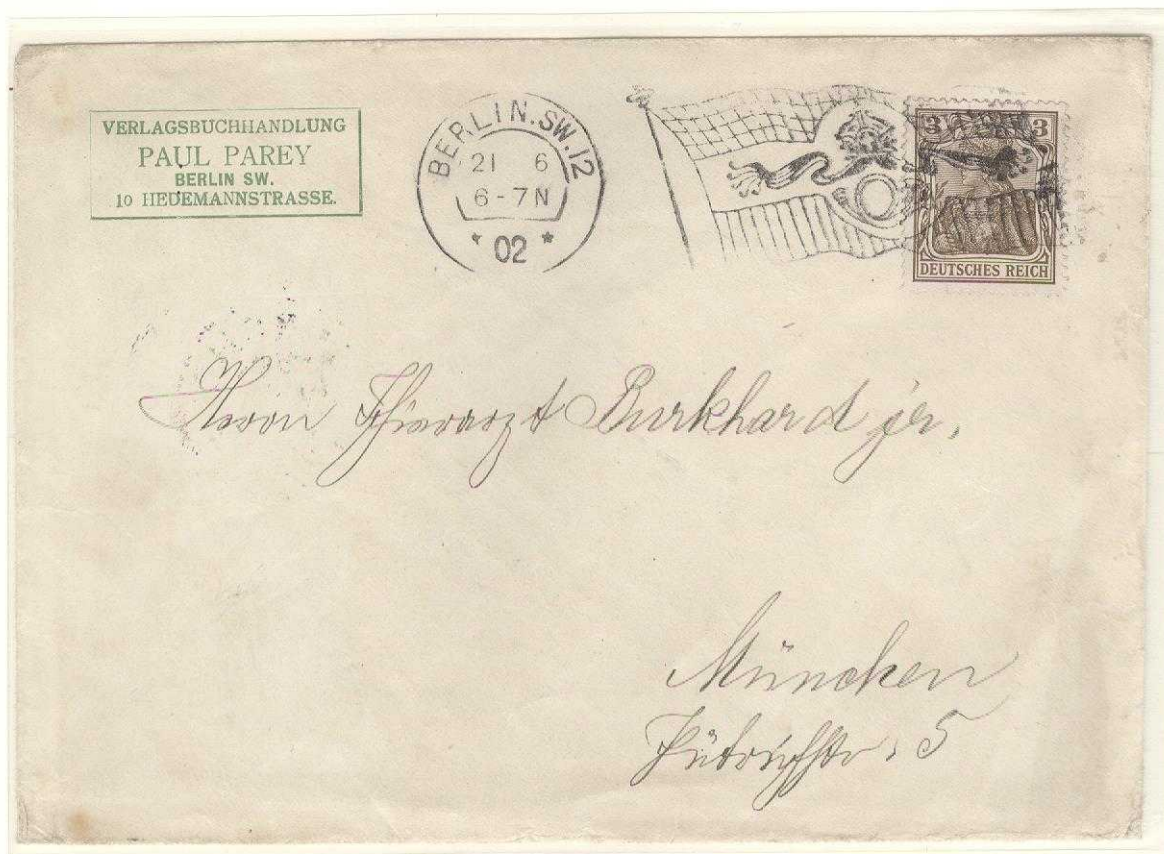 VERLAGSBUCHHANDLUNG
PAUL PAREY
BERLIN SW.
10 HEDEMANNSTRASSE.
BERLIN.SW.12
21 6
6-7N
* 02 *
3 3
DEUTSCHES REICH
Herrn Thierarzt Burkhard jr.
München
5